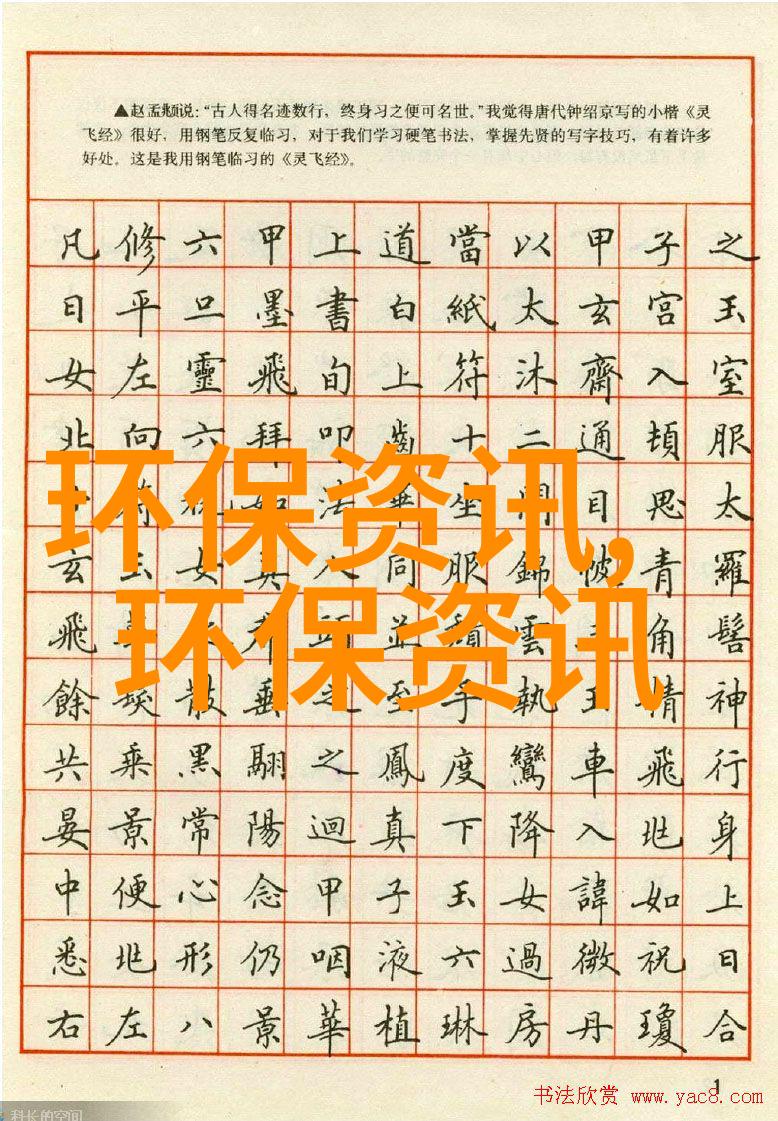 ▲赵孟頫说：“古人得名迹数行，终身习之便可名世。”我觉得唐代钟绍京写的小楷《灵
飞经》很好，用钢笔反复临习，对于我们学习硬笔书法，掌握先贤的写字技巧，有着许多
好处。这是我用钢笔临习的《灵飞经》。
凡修六甲上道當以甲子之
日平旦墨書白紙太玄宮玉
女左靈飛旬上符沐齋入室
北向六拜叩齒十二通頓服
符祝如法畢坐閉目思太
玄玉女真八同服錦帔青羅
飛頭並頹雲三角髻
餘髮散垂之至手執玉精神
共乘黑翮之鳳度鸞車飛行
晏景常陽迴真下降入兆身
中便心念甲子玉女諱如上
悉兆形仍咽液六過微祝日
右左八景華植琳房丹瓊合
环保资讯,
环保资讯
1
书法欣赏 www.yac8.com
科长的空间